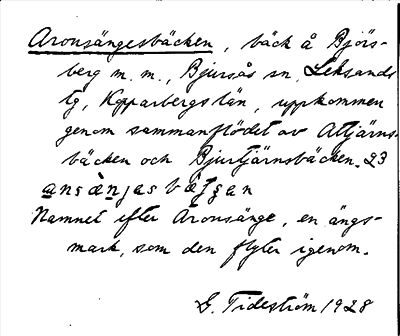 Aronsängesbäcken, bäck å Björs-
berg m. m., Bjursås sn, Leksands
tg, Kopparbergs län, uppkommen
genom sammanflödet av Attjärns-
bäcken och Bjurtjärnsbäcken. 23
Namnet efter Aronsänge, en ängs-
mark, som den flyter igenom.
G. Tideström 1928